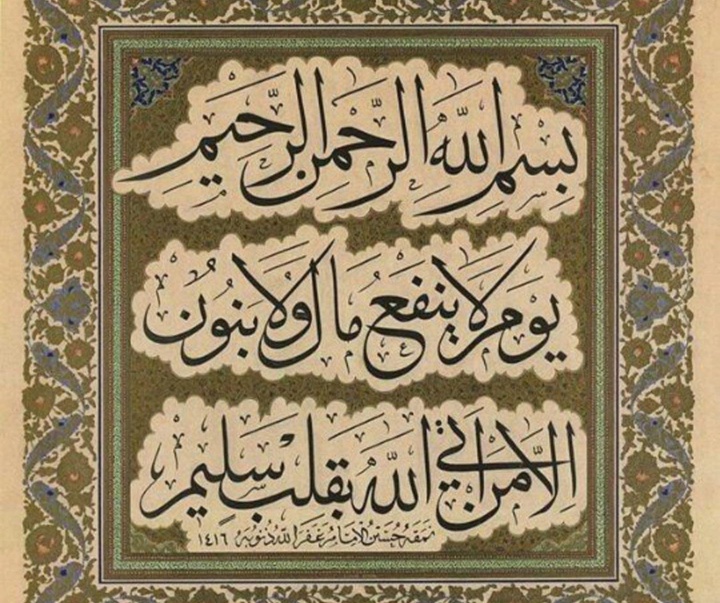 بِسْمِ اللّٰهِ الرَّحْمٰنِ الرَّحِيمِ
يَوْمَ لَا يَنْفَعُ مَالٌ وَلَا بَنُونَ
إِلَّا مَنْ أَتَى اللّٰهَ بِقَلْبٍ سَلِيمٍ
نمقه حسين الامامر غفر الله ذنوبه ١٤١٦